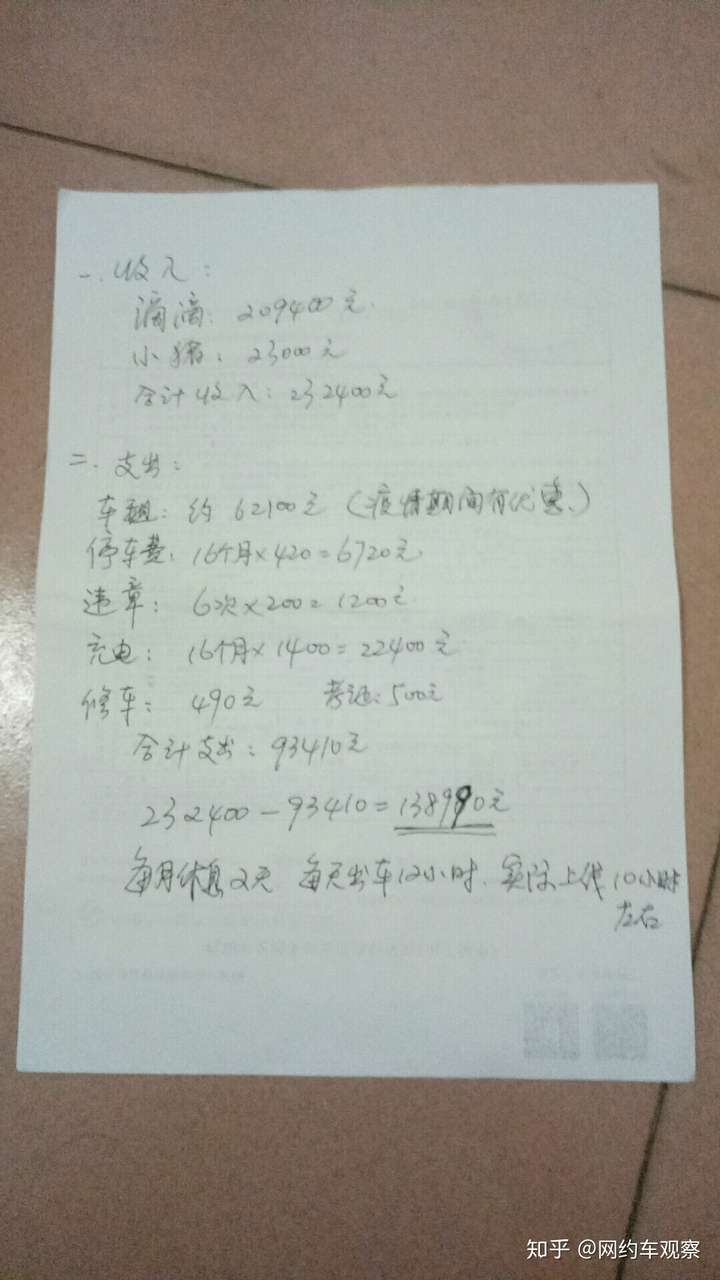 一.收入：
滴滴：209400元.
小猪：23000元
合计收入：232400元
二.支出：
车租：约62100元（疫情期间有优惠、）
停车费：16个月×420=6720元
违章：6次×200=1200元
充电：16个月×1400=22400元
修车：490元 考证：500元
合计支出：93410元
232400-93410=138990元
每月休息2天 每天出车12小时.实际上线10小时
左右
知乎 @网约车观察